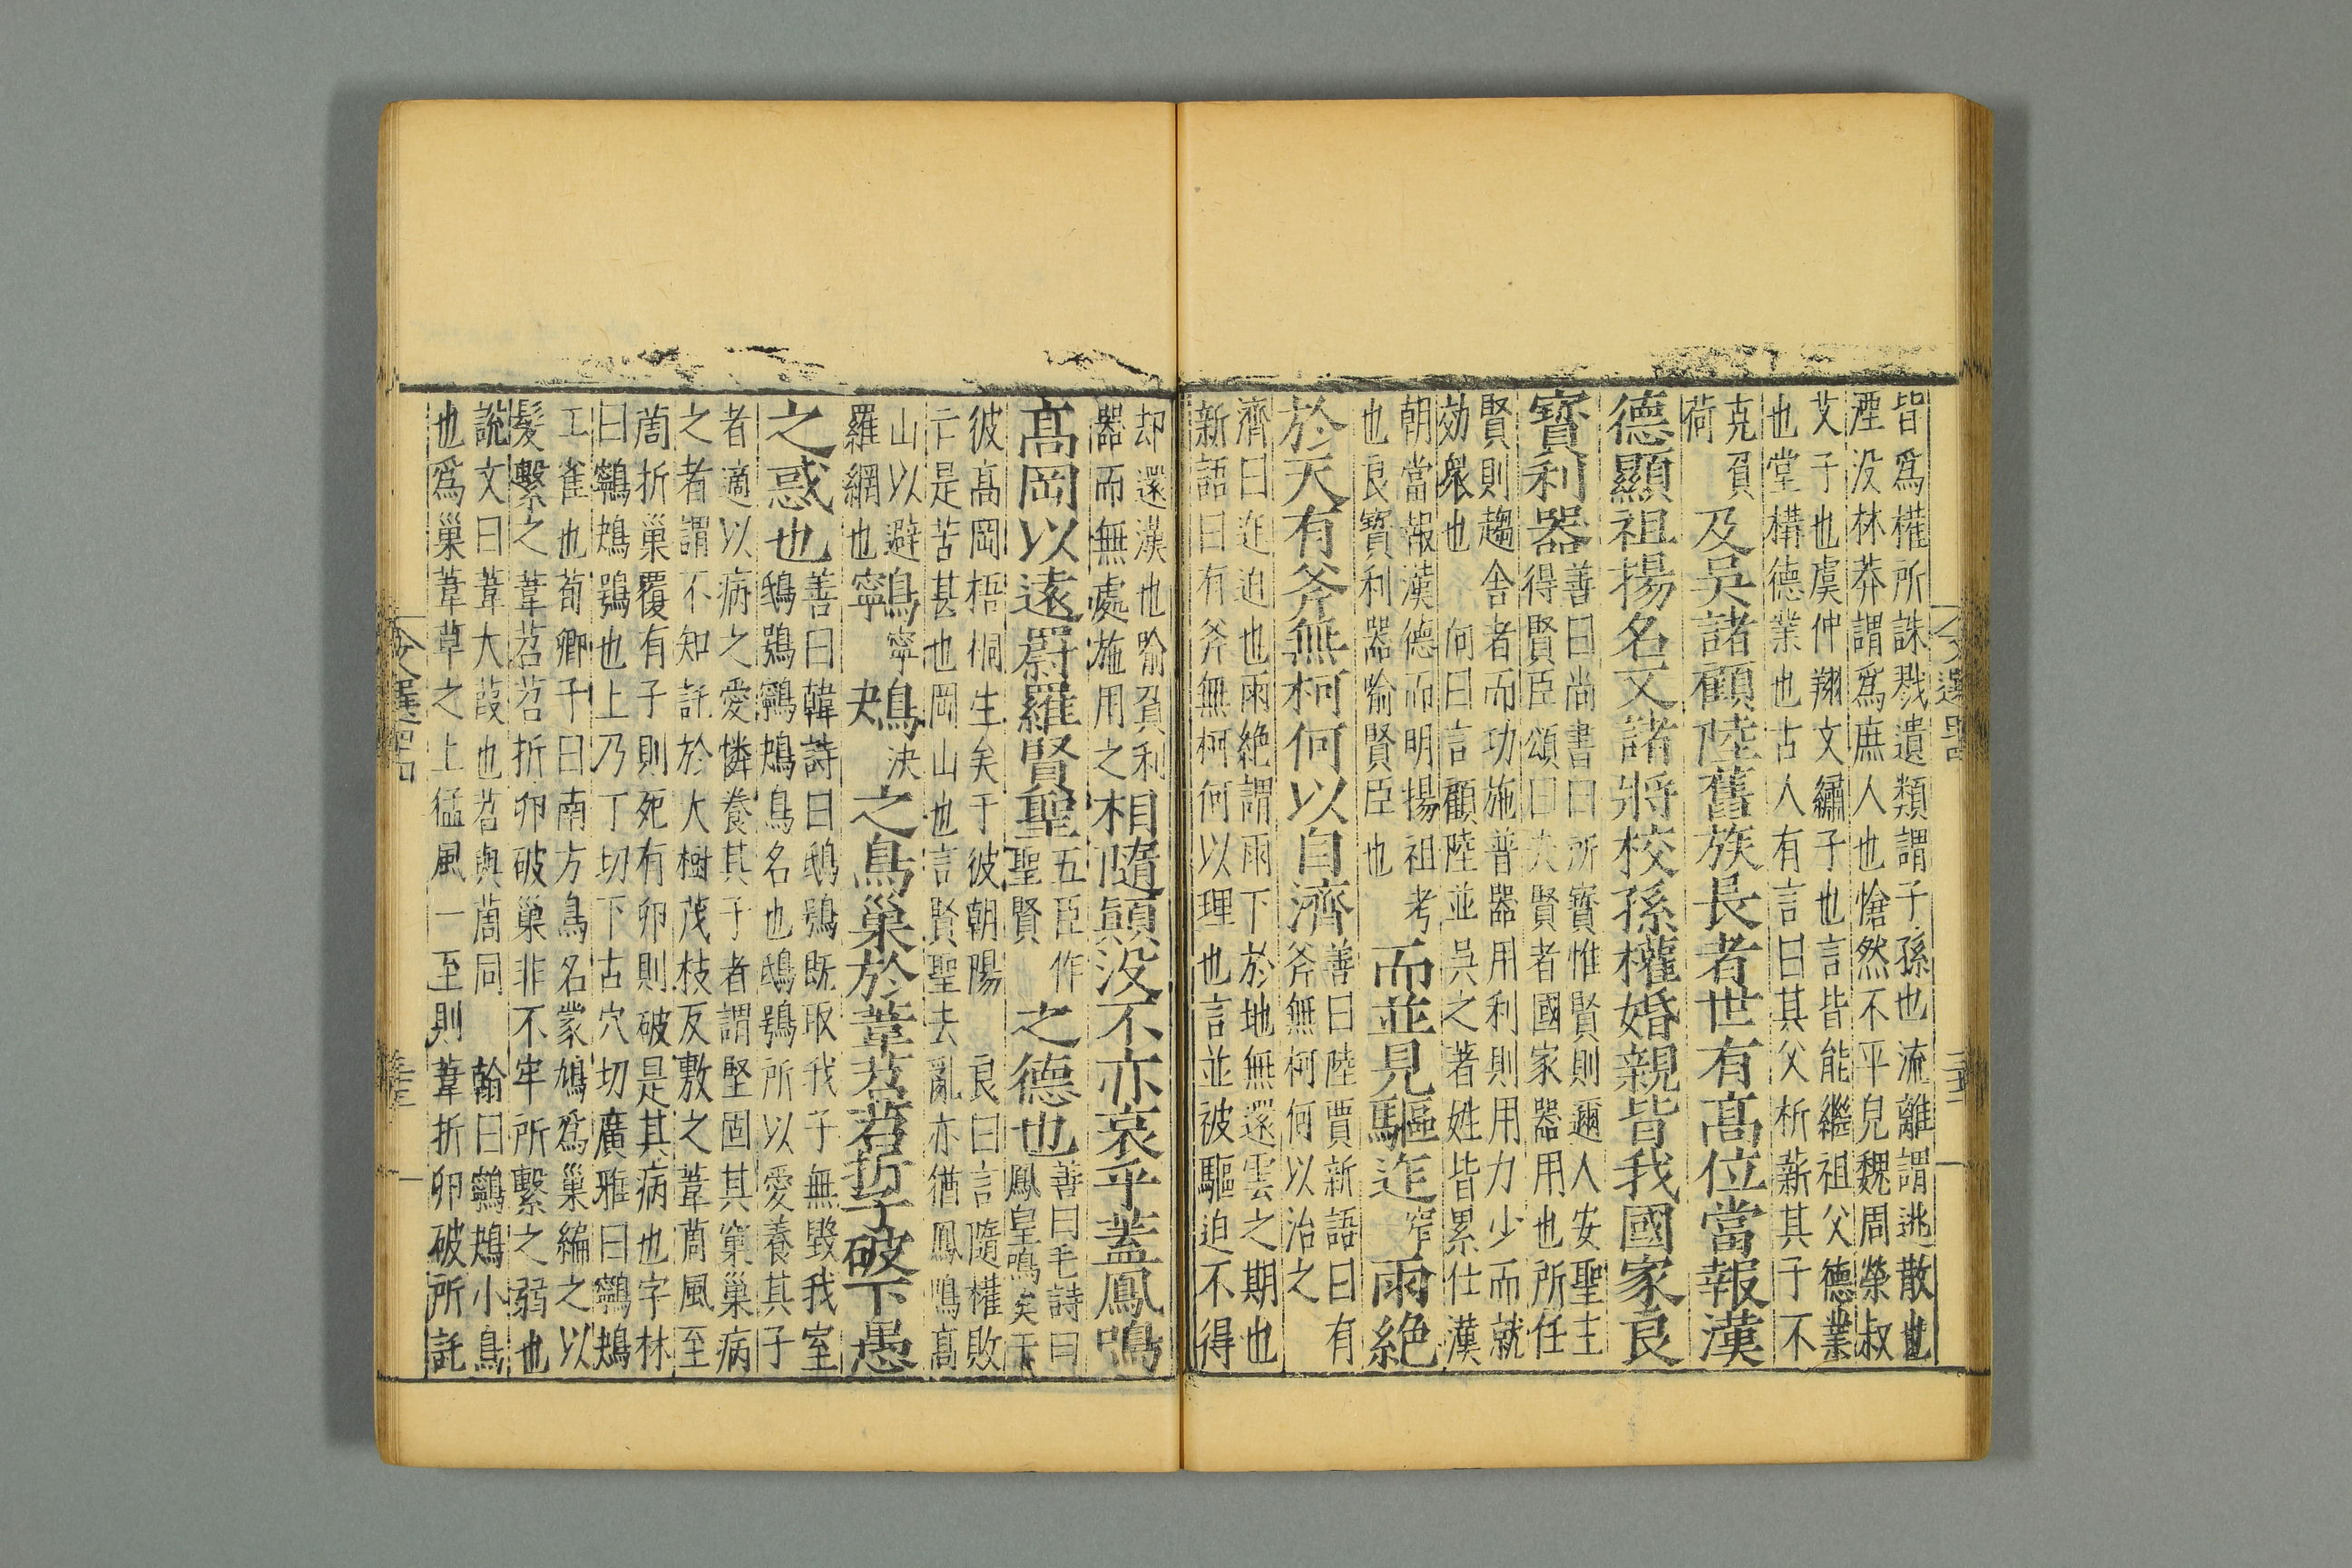 皆爲權所誅戮遺類謂子孫也流離謂逃散也
堙没林莽謂爲庶人也愴然不平皃魏周榮叔
艾子也虞仲翔文繡子也言皆能繼祖父德業
也堂構德業也古人有言曰其父析薪其子不
克負
荷
及吳諸顧陸舊族長者世有髙位當報漢
德顯祖揚名又諸將校孫權婚親皆我國家良
寳利器
善曰尚書曰所寳惟賢則邇人安聖主
得賢臣頌曰夫賢者國家器用也所任
賢則趨舍者而功施普器用利則用力少而就
効衆也 向曰言顧陸並吳之著姓皆累仕漢
朝當報漢德而明揚祖考
也良寳利器喻賢臣也
而並見驅迮窄雨絶
於天有斧無柯何以自濟
善曰陸賈新語曰有
斧無柯何以治之
濟曰迮迫也雨絶謂雨下於地無還雲之期也
新語曰有斧無柯何以理也言並被驅迫不得
却還漢也喻負利
器而無處施用之
相隨顚没不亦哀乎蓋鳳鳴
髙岡以遠罻羅賢聖
五臣作
聖賢
之德也
善曰毛詩曰
鳳皇鳴矣于
彼髙岡梧桐生矣于彼朝陽 良曰言隨權敗
亡是苦甚也岡山也言賢聖去亂亦猶鳳鳴髙
山以避
羅網也
鸋寧鴂決之鳥巢於葦苕苕折子破下愚
之惑也
善曰韓詩曰鴟鴞既取我子無毀我室
鴟鴞鸋鴂鳥名也鴟鴞所以愛養其子
者適以病之愛憐養其子者謂堅固其窠巢病
之者謂不知託於大樹茂枝反敷之葦䓹風至
䓹折巢覆有子則死有卵則破是其病也字林
曰鸋鴂鴞也上乃丁切下古穴切廣雅曰鸋鴂
工雀也荀卿子曰南方鳥名蒙鳩爲巢編之以
髮繫之葦苕苕折卵破巢非不牢所繫之弱也
説文曰葦大葭也苕與䓹同 翰曰鸋鴂小鳥
也爲巢葦草之上猛風一至則葦折卵破所託